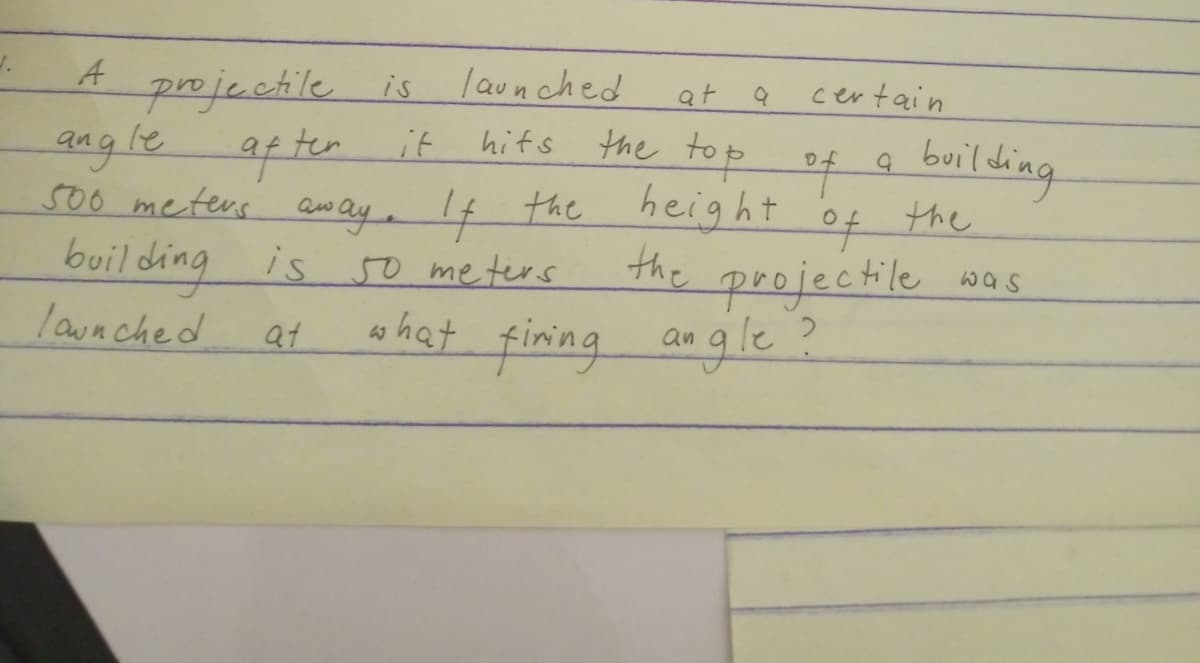 1. A projectile is launched at a certain
angle after it hits the top of a building
500 meters away. If the height of the
building is 50 meters the projectile was
launched at what firing angle?